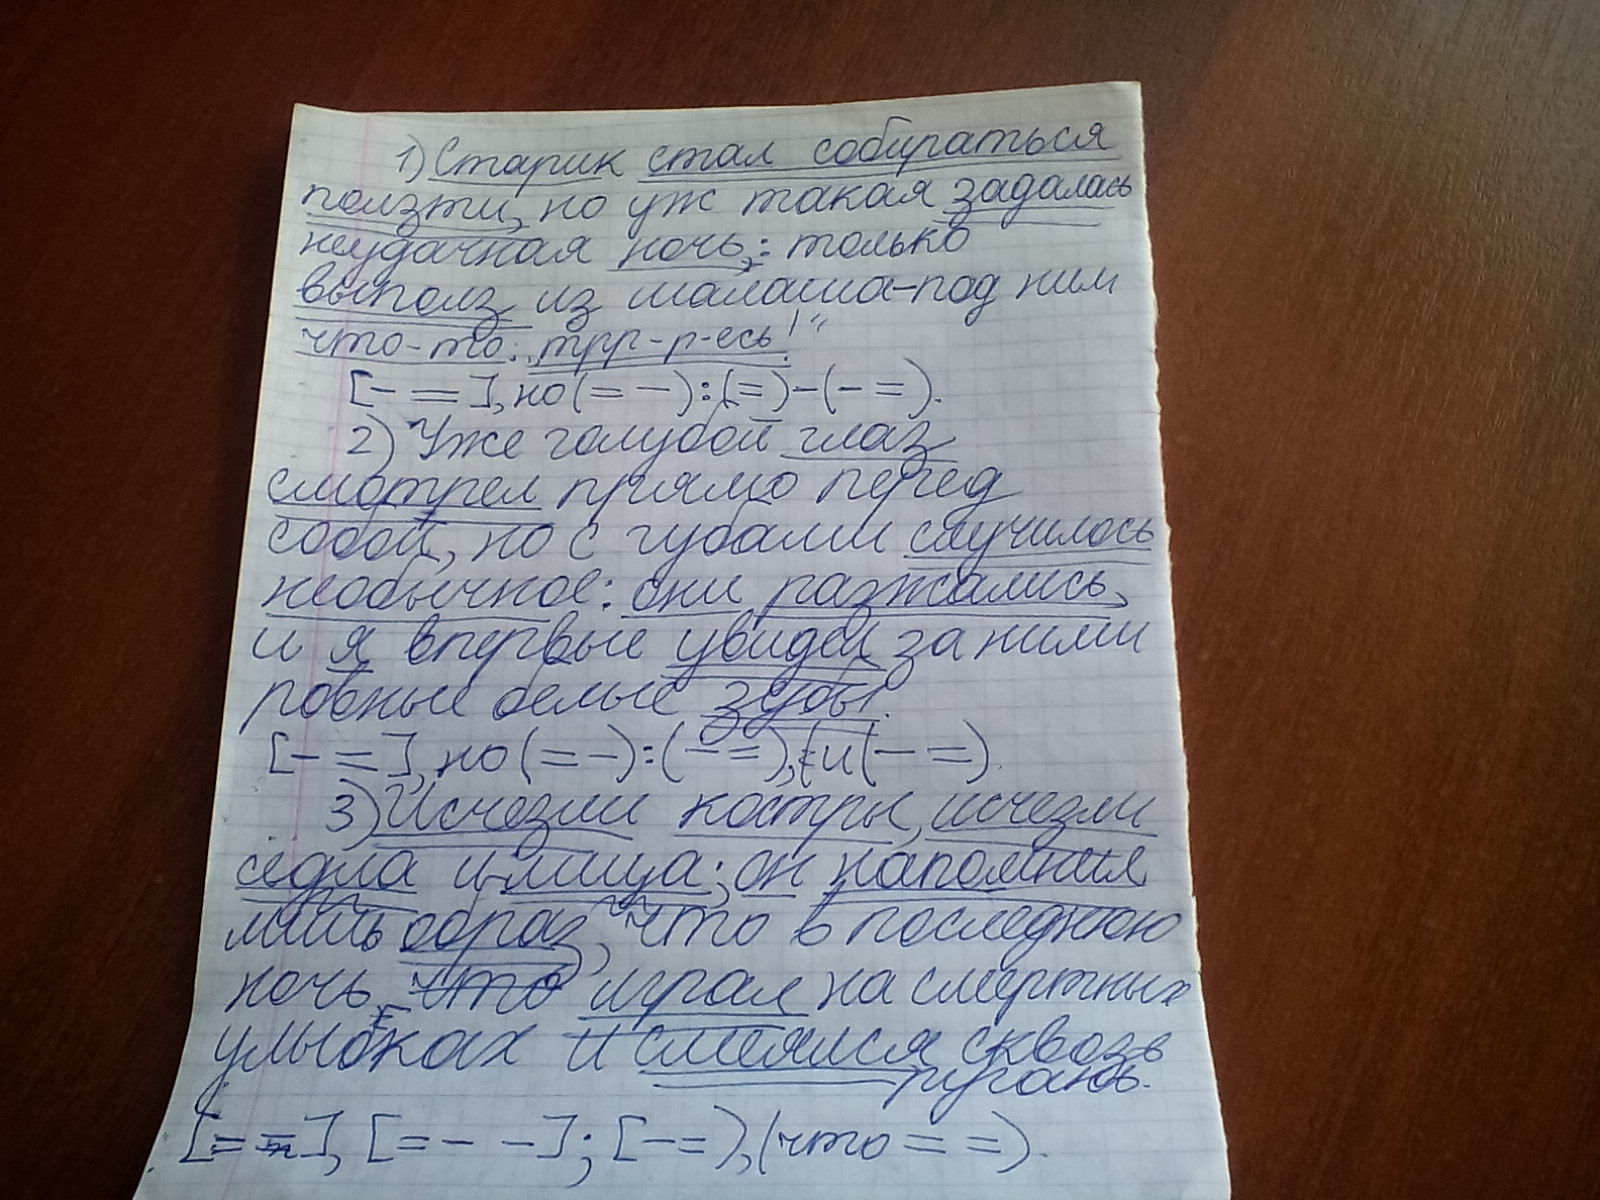 1) Старик стал собираться
ползти, но уж такая задалась
неудачная ночь,: только
выполз из шалаша-под ним
что-то: „трр-р-есь!“
[- =], но (= -) : (=) - (- =).
2) Уже голубой глаз
смотрел прямо перед
собой, но с губами случилось
необычное: они разжались,
и я впервые увидел за ними
ровные белые зубы.
[- =], но (= -) : (- =), и (- =).
3) Исчезли костры, исчезли
седла и лица; он напомнил
лишь образ, что в последнюю
ночь, что играл на смертных
улыбках и смеялся сквозь
ругань.
[= -], [= - -]; [- =), (что = =).